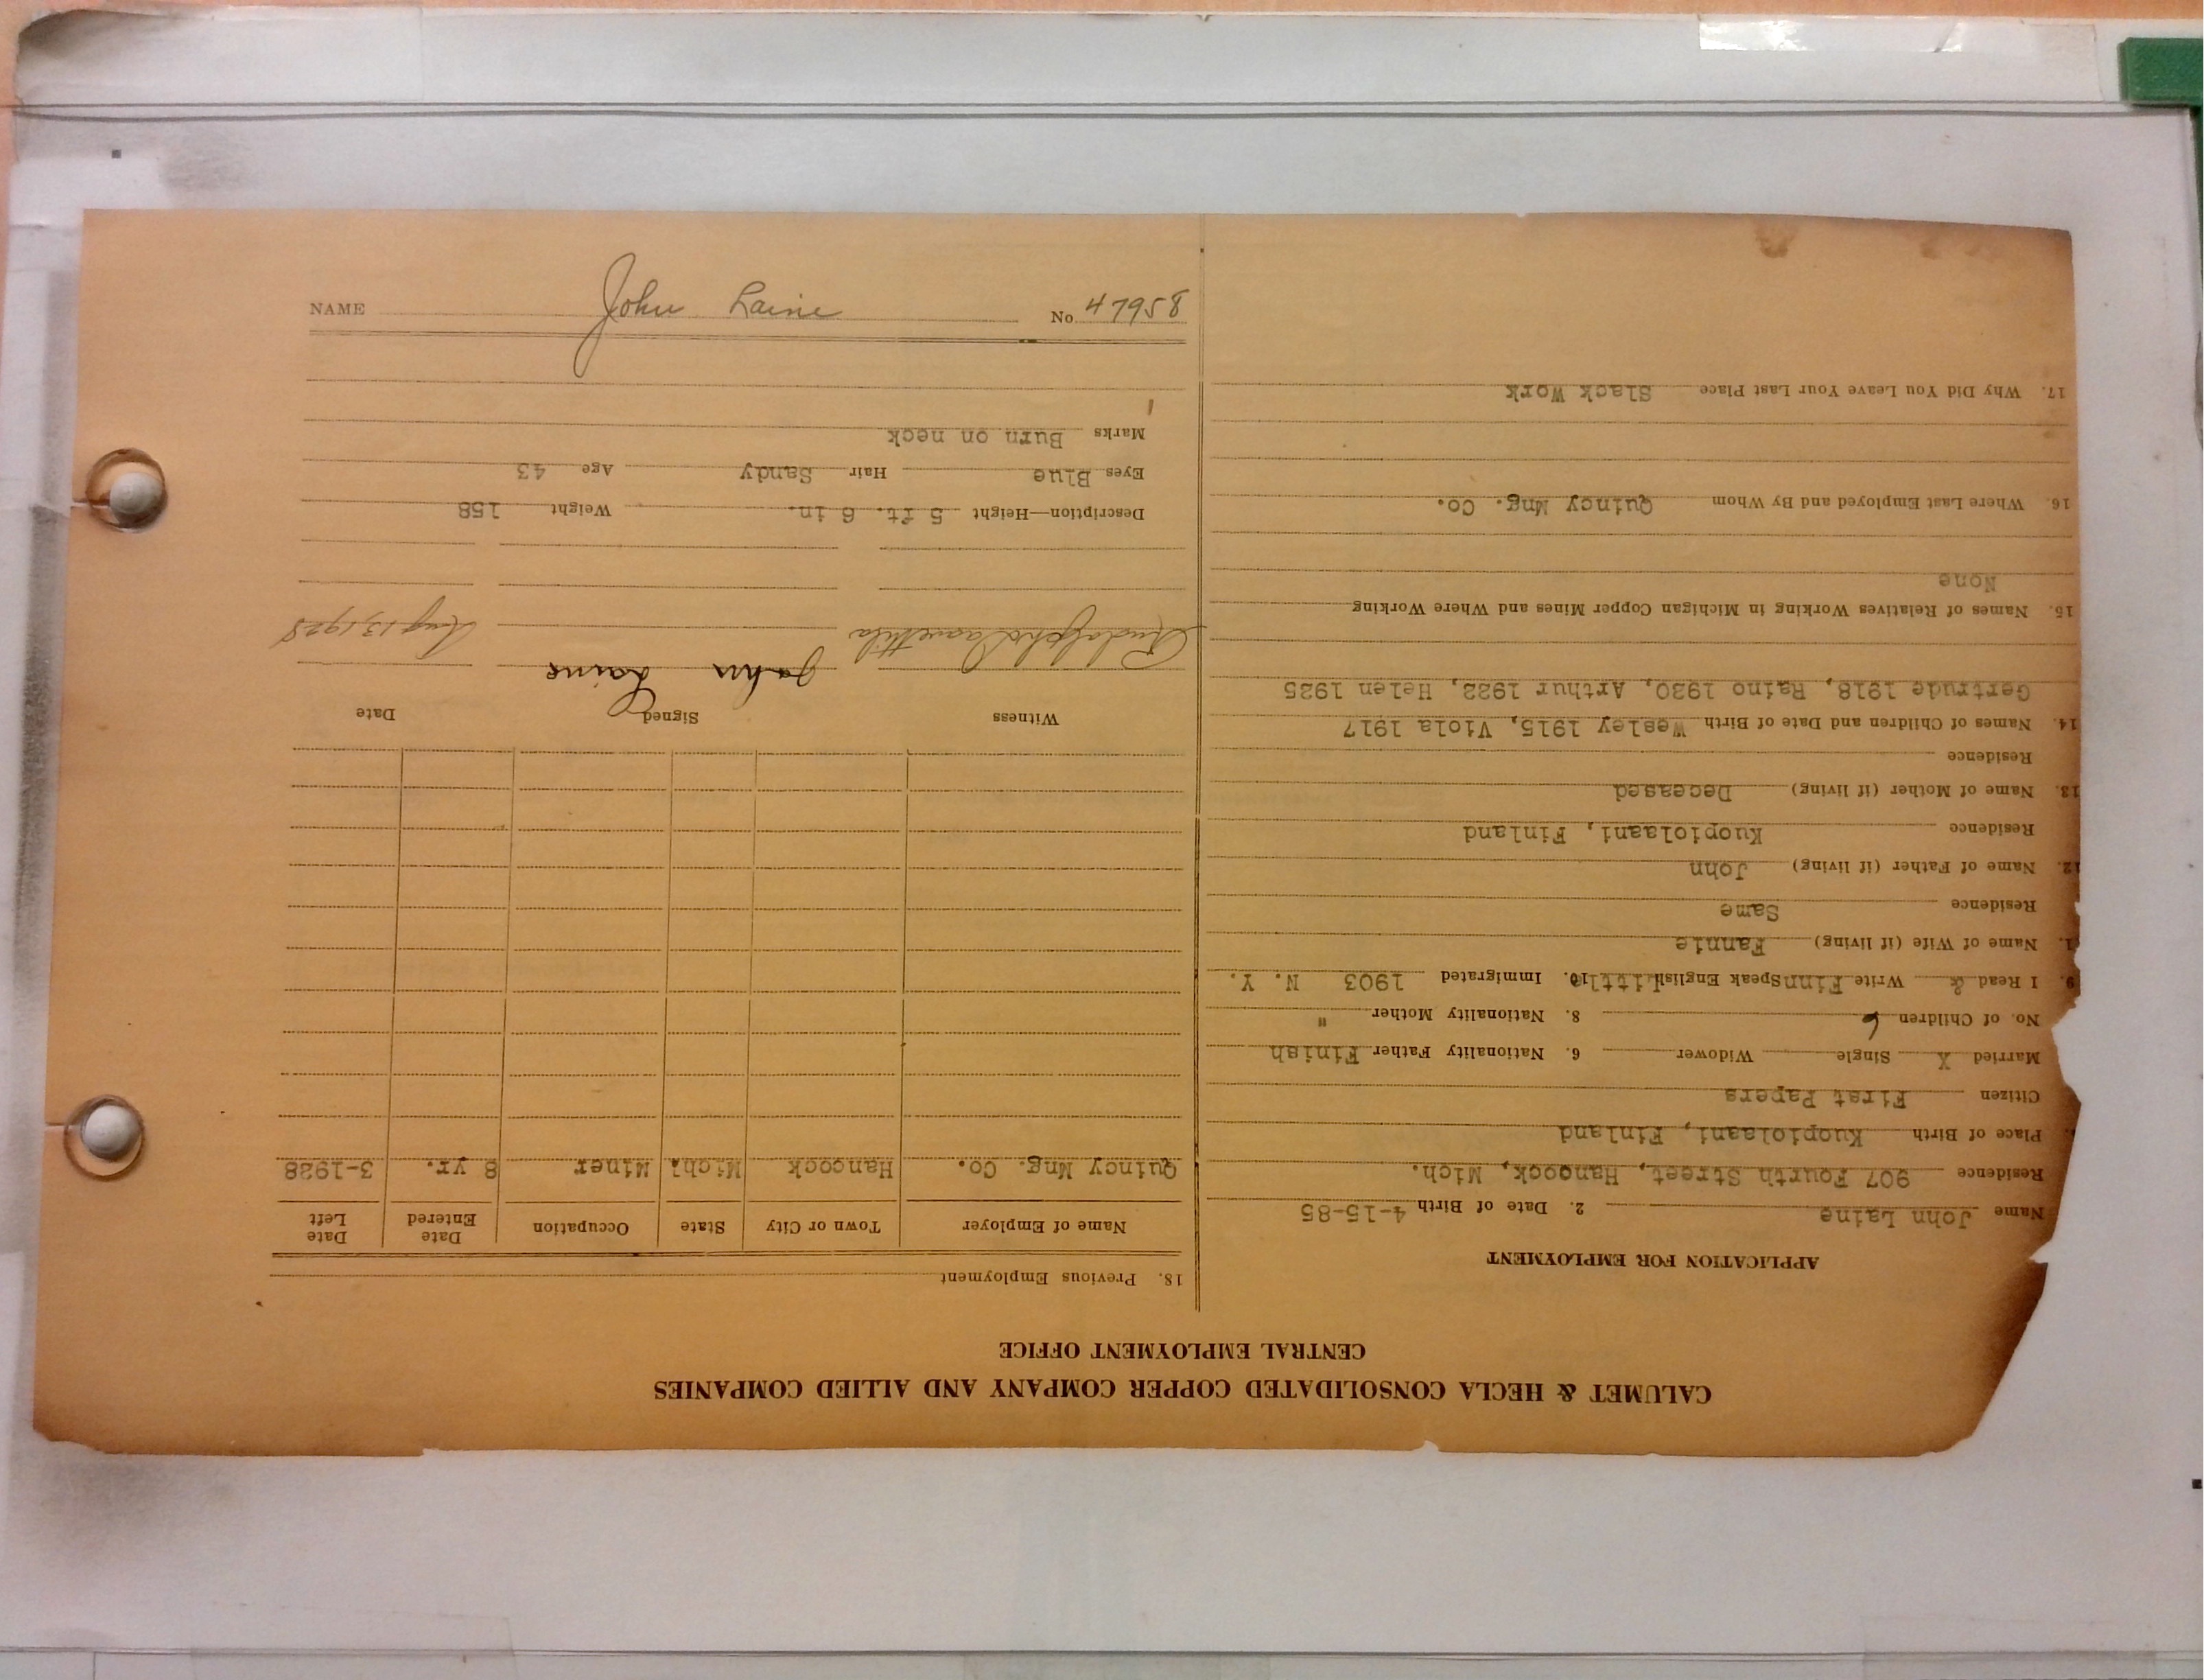 CALUMET & HECLA CONSOLIDATED COPPER COMPANY AND ALLIED COMPANIES
CENTRAL EMPLOYMENT OFFICE
APPLICATION FOR EMPLOYMENT
Name John Laine 2. Date of Birth 4-15-85
Residence 907 Fourth Street, Hancock, Mich.
Place of Birth Kuopiolaani, Finland
Citizen First Papers
Married X Single Widower 6. Nationality Father Finish
No. of Children 6 8. Nationality Mother "
9. I Read & Write Finn Speak English Little 10. Immigrated 1903 N. Y.
1. Name of Wife (if living) Fannie
Residence Same
12. Name of Father (if living) John
Residence Kuopiolaani, Finland
13. Name of Mother (if living) Deceased
Residence
14. Names of Children and Date of Birth Wesley 1915, Viola 1917
Gertrude 1918, Raino 1920, Arthur 1922, Helen 1925
15. Names of Relatives Working in Michigan Copper Mines and Where Working
None
16. Where Last Employed and By Whom Quincy Mng. Co.
17. Why Did You Leave Your Last Place Slack Work
18. Previous Employment
Name of Employer Town or City State Occupation Date Entered Date Left
Quincy Mng. Co. Hancock Mich. Miner 8 yr. 3-1928
Witness Signed Date
Rudolph John Laine Aug 13, 1928
Description—Height 5 ft. 6 in. Weight 158
Eyes Blue Hair Sandy Age 43
Marks Burn on neck
NAME John Laine No. 47958